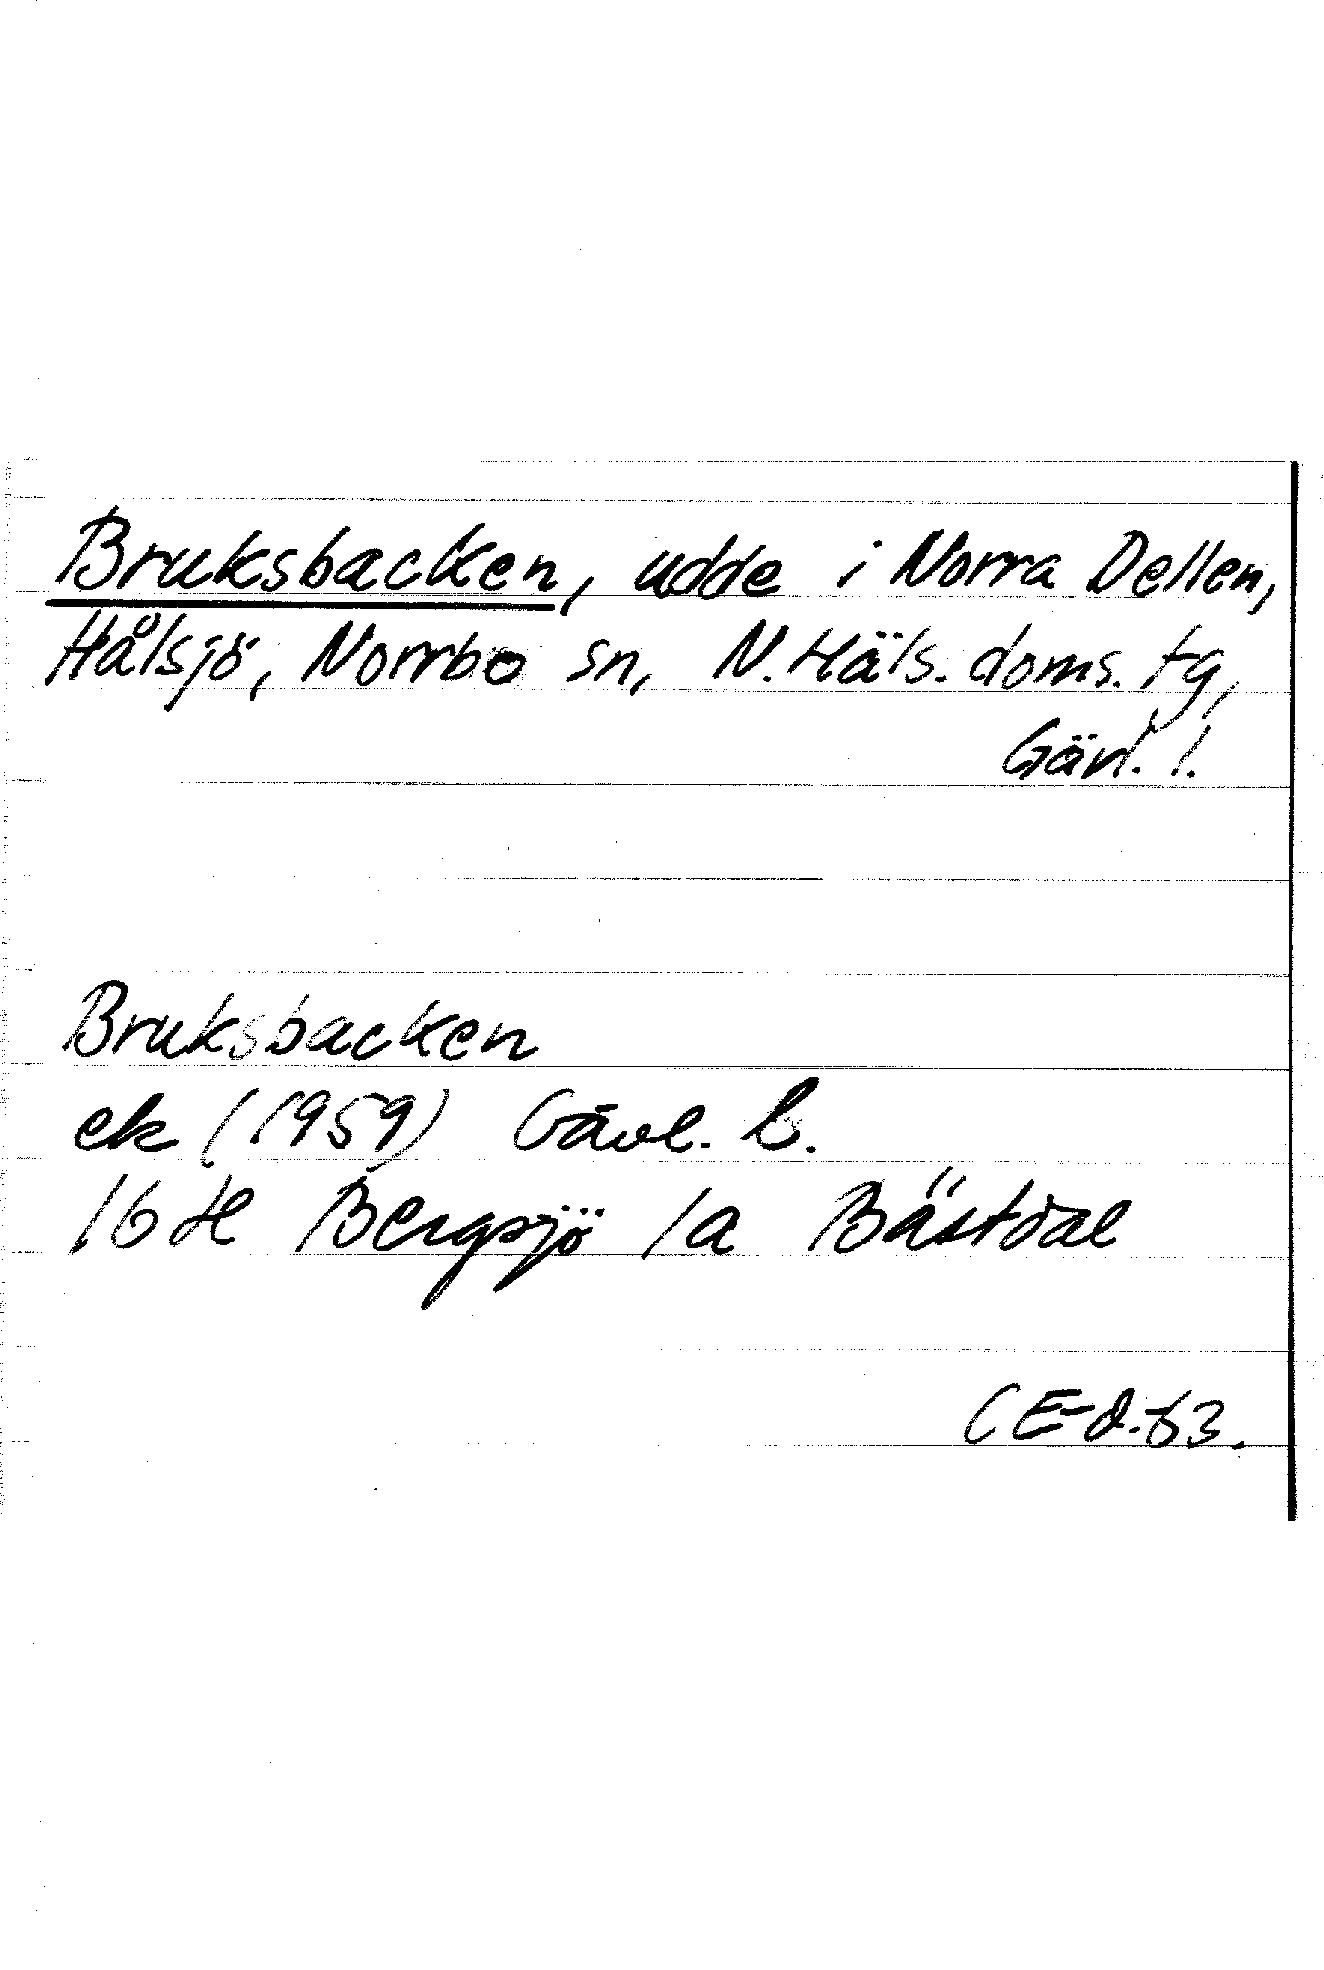 Bruksbacken, udde i Norra Dellen,
Hålsjö, Norrbo sn, N. Häls. doms. tg,
Gävl. l.
Bruksbacken
ek (1959) Gävl. l.
16 H Bergsjö 1a Bästdal
CE-d.-83.